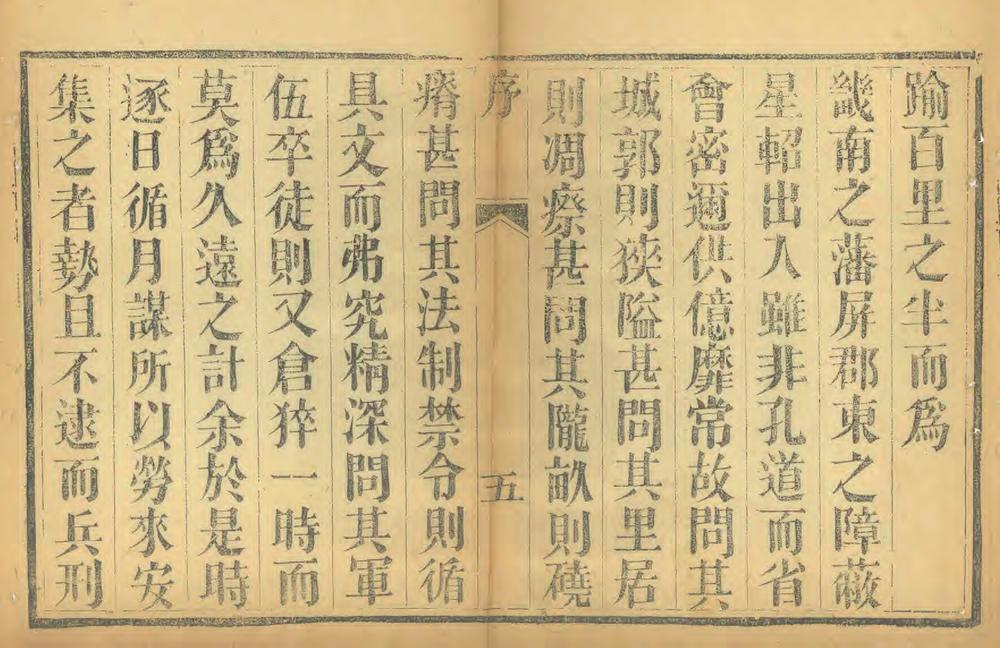 踰百里之半而爲
畿南之藩屏郡東之障蔽
星軺出入雖非孔道而省
會密邇供億靡常故問其
城郭則狹隘甚問其里居
則凋瘵甚問其隴畝則磽
序
五
瘠甚問其法制禁令則循
具文而弗究精深問其軍
伍卒徒則又倉猝一時而
莫爲久遠之計余於是時
逐日循月謀所以勞來安
集之者勢且不逮而兵刑